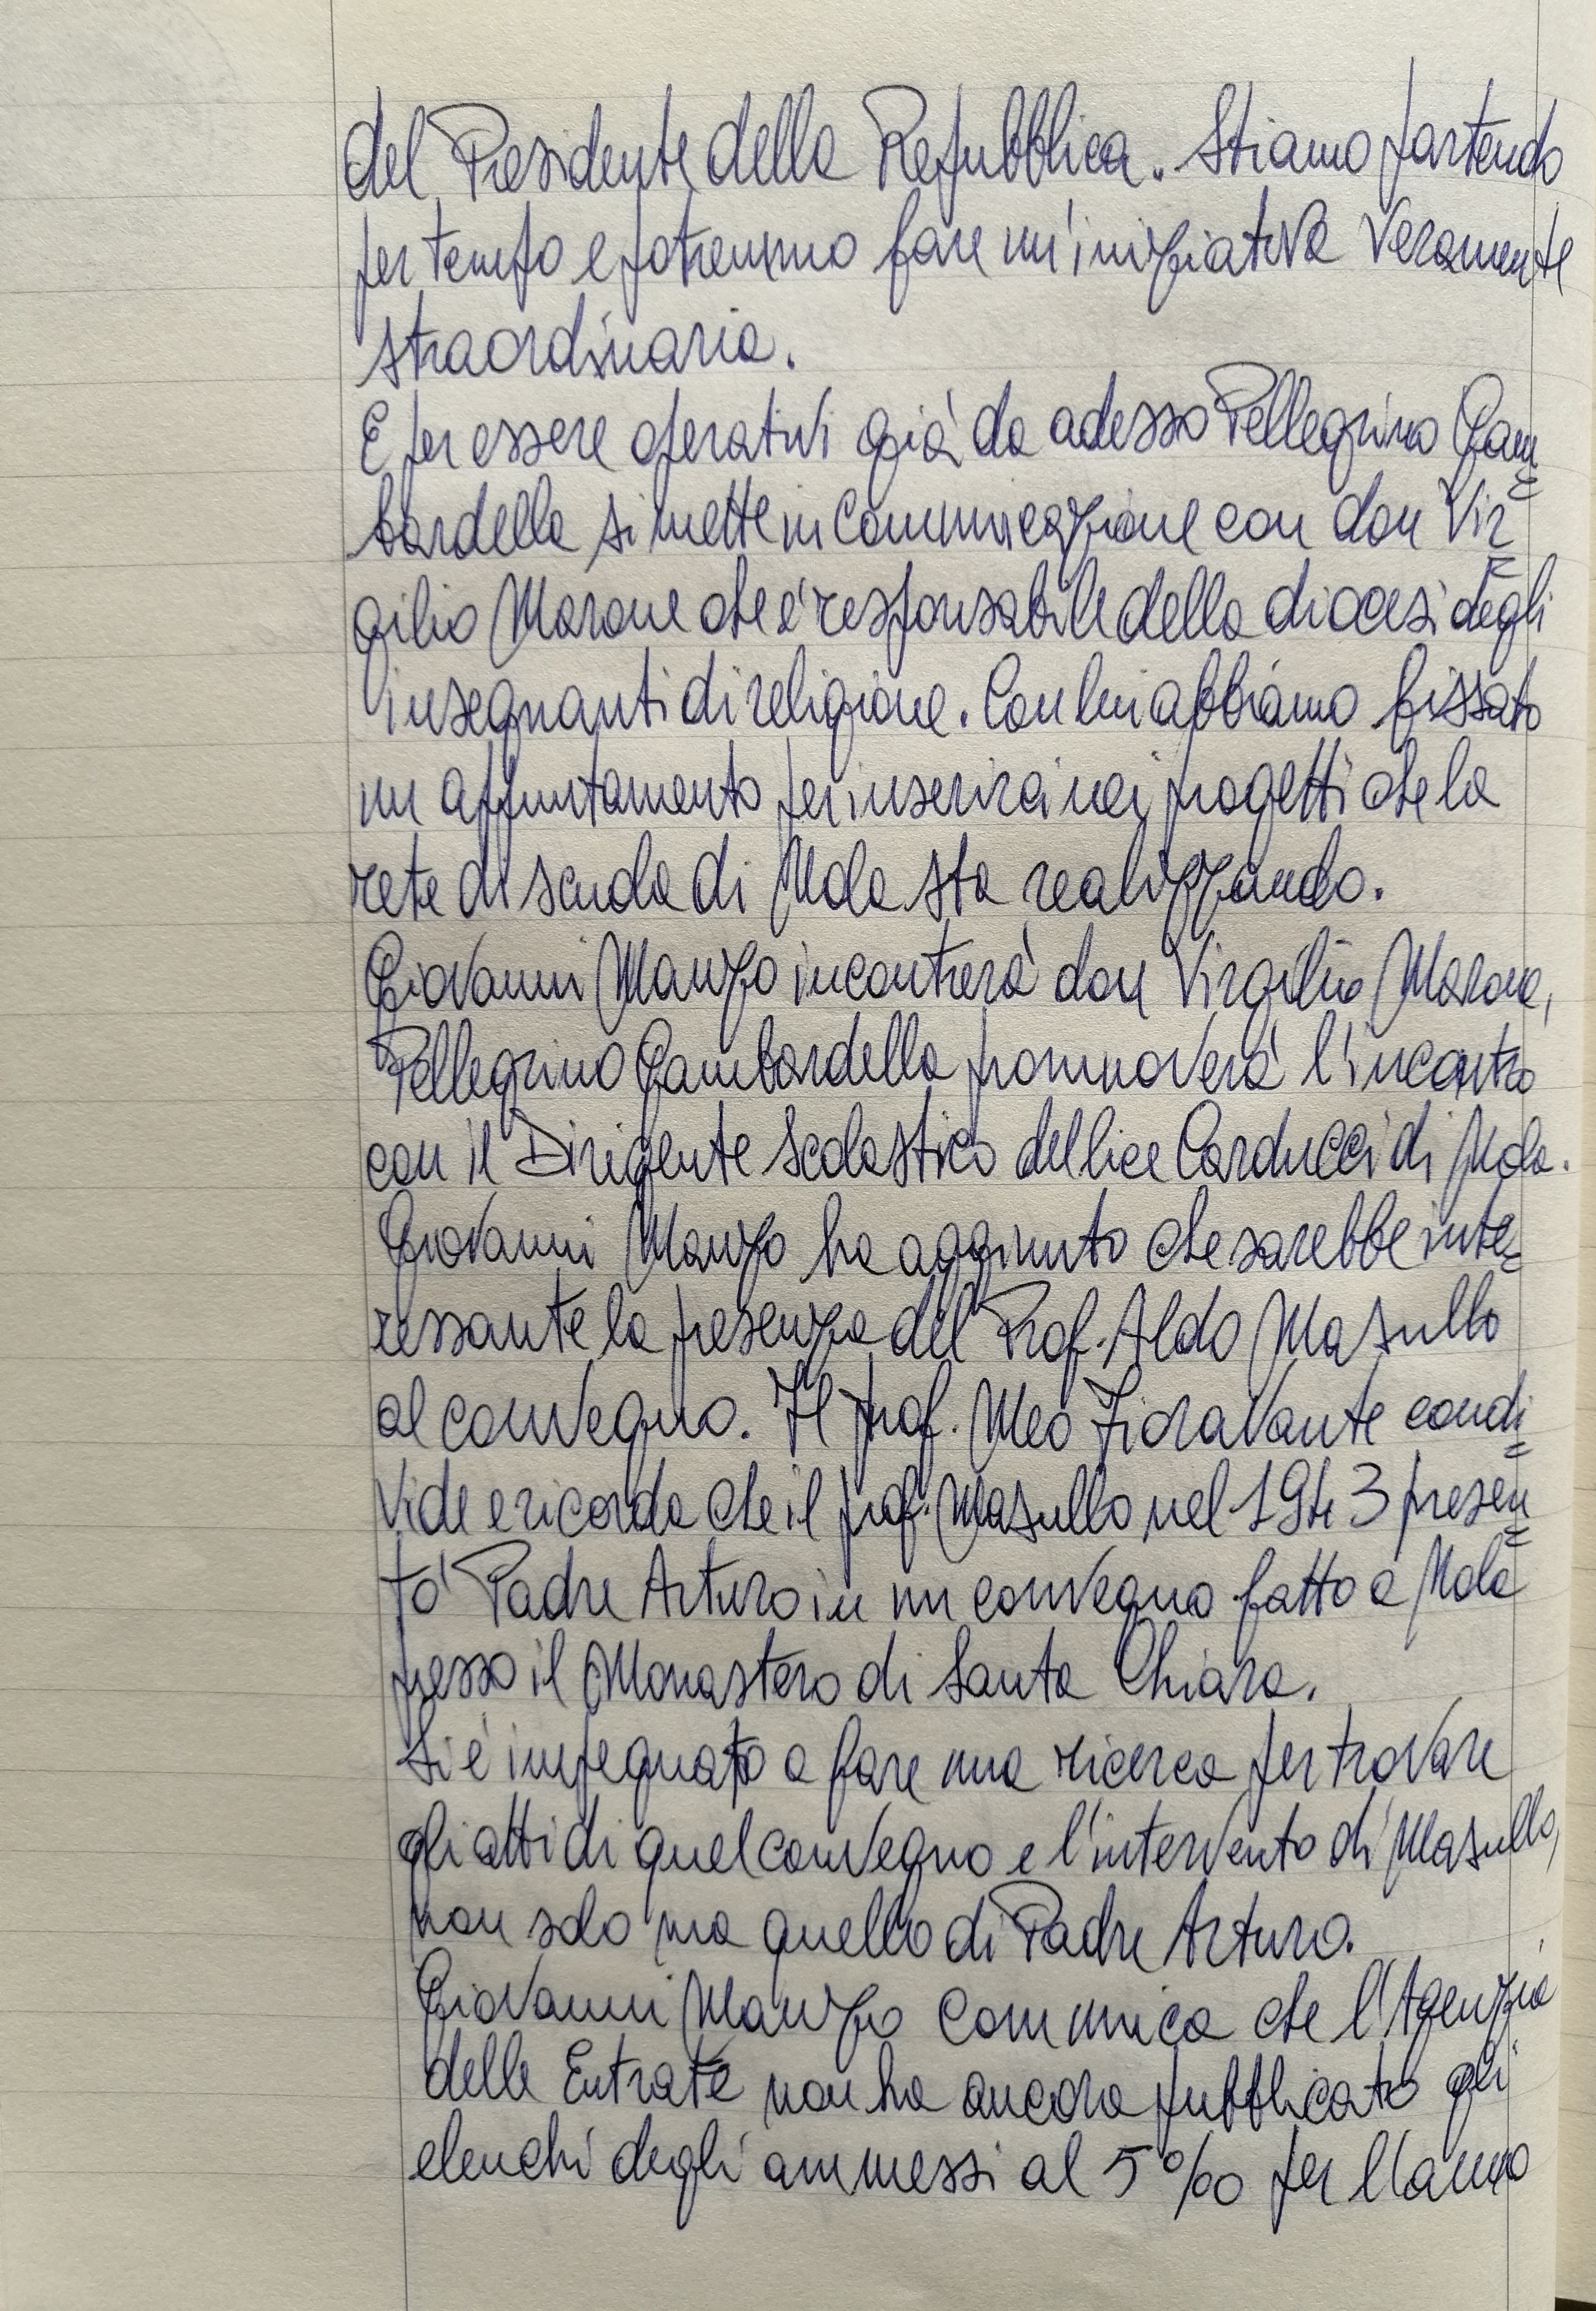 del Presidente della Repubblica. Stiamo partendo
per tempo e potremmo fare un'iniziativa veramente
straordinaria.
E per essere operativi già da adesso Pellegrino Gam=
bardella si mette in comunicazione con don Vir=
gilio Marone che è responsabile della diocesi degli
insegnanti di religione. Con lui abbiamo fissato
un appuntamento per inserirci nei progetti che la
rete di scuola di Nola sta realizzando.
Giovanni Manzo incontrerà don Virgilio Marone,
Pellegrino Gambardella promuoverà l'incontro
con il Dirigente scolastico del lice Carducci di Nola.
Giovanni Manzo ha aggiunto che sarebbe inte=
ressante la presenza del Prof. Aldo Masullo
al convegno. Il prof. Meo Fioravante condi=
vide e ricorda che il prof. Masullo nel 1943 presen=
tò Padre Arturo in un convegno fatto a Nola
presso il Monastero di Santa Chiara.
Si è impegnato a fare una ricerca per trovare
gli atti di quel convegno e l'intervento di Masullo,
non solo ma quello di Padre Arturo.
Giovanni Manzo comunica che l'Agenzia
delle Entrate non ha ancora pubblicato gli
elenchi degli ammessi al 5‰ per l'anno